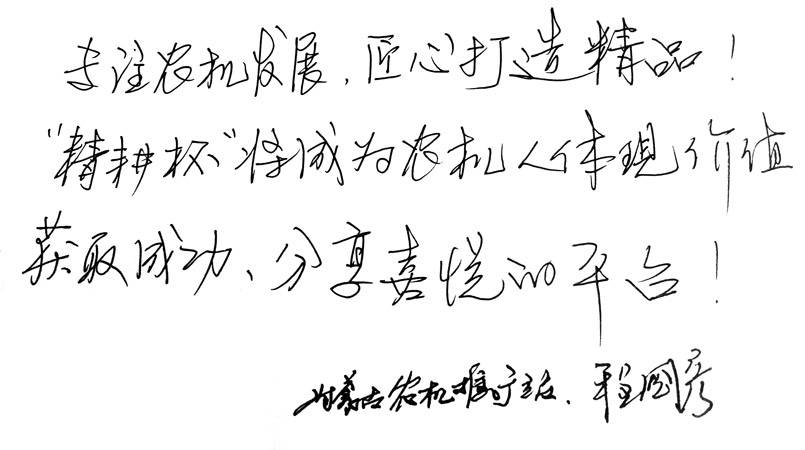 专注农机发展,匠心打造精品!
"精耕杯"将成为农机人体现价值
获取成功、分享喜悦的平台!
内蒙古农机推广站、程国彦